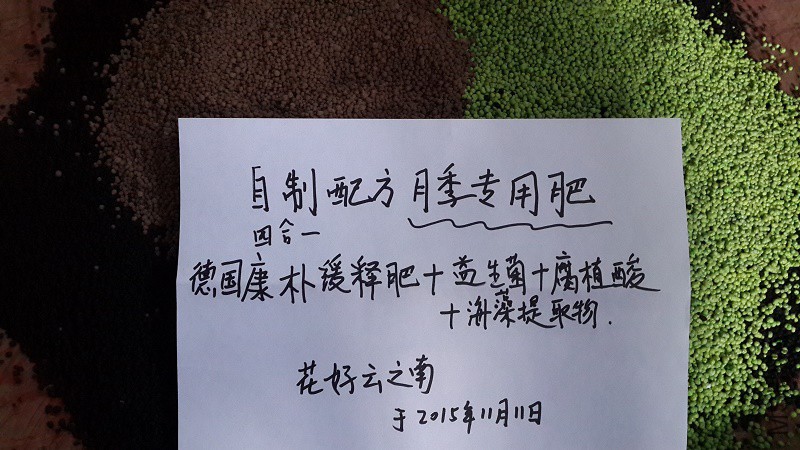 自制配方月季专用肥
四合一
德国康朴缓释肥+益生菌+腐植酸
+海藻提取物.
花好云之南
于2015年11月11日